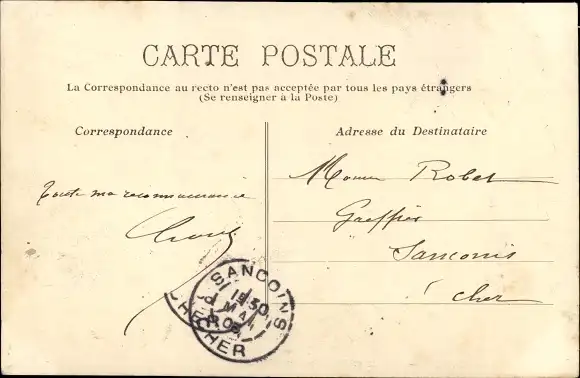 CARTE POSTALE
La Correspondance au recto n'est pas acceptée par tous les pays étrangers
(Se renseigner à la Poste)
Correspondance
Adresse du Destinataire
Toute ma reconnaissance
Robet
Greffier
Sancoins
Cher
SANCOINS
CHER